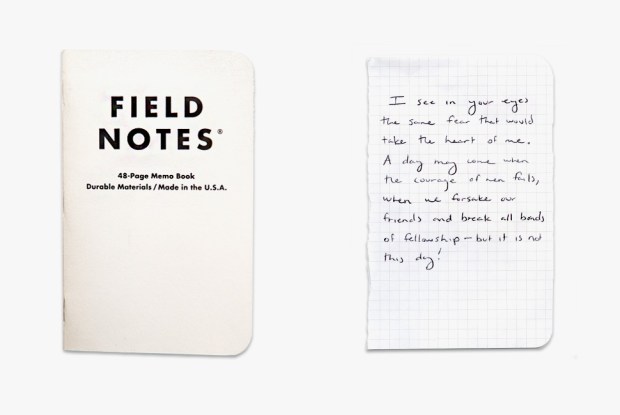 FIELD
NOTES®
48-Page Memo Book
Durable Materials / Made in the U.S.A.
I see in your eyes
the same fear that would
take the heart of me.
A day may come when
the courage of men fails,
when we forsake our
friends and break all bonds
of fellowship – but it is not
this day!